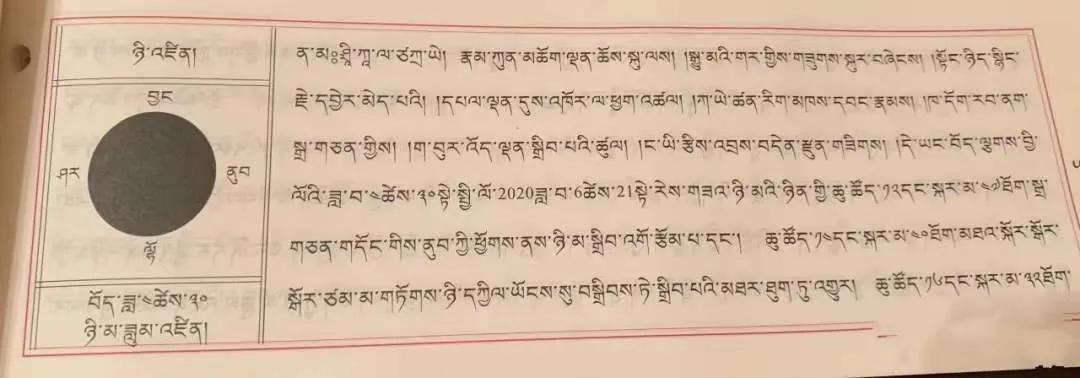 ཉི་འཛིན།
བྱང
ཤར
ནུབ
ལྷོ
བོད་ཟླ་༤ཚེས་༣༠
ཉི་མ་ཟླུམ་འཛིན།
ན་མཿཤྲཱི་ཀཱ་ལ་ཙཀྲ་ཡེ། རྣམ་ཀུན་མཆོག་ལྡན་ཆོས་སྐུ་ལས། །སྒྱུ་མའི་གར་གྱིས་གཟུགས་སྐུར་བཞེངས། །སྟོང་ཉིད་སྙིང་
རྗེ་དབྱེར་མེད་པའི། །དཔལ་ལྡན་དུས་འཁོར་ལ་ཕྱག་འཚལ། །ཀ་ཡེ་ཚན་རིག་མཁས་དབང་རྣམས། །ཁ་དོག་རབ་ནག་
སྒྲ་གཅན་གྱིས། །ག་བུར་འོད་ལྡན་སྒྲིབ་པའི་ཚུལ། །ང་ཡི་རྩིས་འབྲས་བདེན་རྫུན་གཟིགས། །དེ་ཡང་བོད་ལུགས་བྱི་
ལོའི་ཟླ་བ་༤ཚེས་༣༠སྟེ་སྤྱི་ལོ་2020ཟླ་བ་6ཚེས་21སྟེ་རེས་གཟའ་ཉི་མའི་ཉིན་གྱི་ཆུ་ཚོད་༡༢དང་སྐར་མ་༤༧ཐོག་སྒྲ་
གཅན་གདོང་གིས་ནུབ་ཀྱི་ཕྱོགས་ནས་ཉི་མ་སྒྲིབ་འགོ་རྩོམ་པ་དང་། ཆུ་ཚོད་༡༤དང་སྐར་མ་༤༠ཐོག་མཐའ་སྐོར་སྒོར་
སྒོར་ཙམ་མ་གཏོགས་ཉི་དཀྱིལ་ཡོངས་སུ་བསྒྲིབས་ཏེ་སྒྲིབ་པའི་མཐར་ཐུག་ཏུ་འགྱུར། ཆུ་ཚོད་༡༦དང་སྐར་མ་༢༢ཐོག་